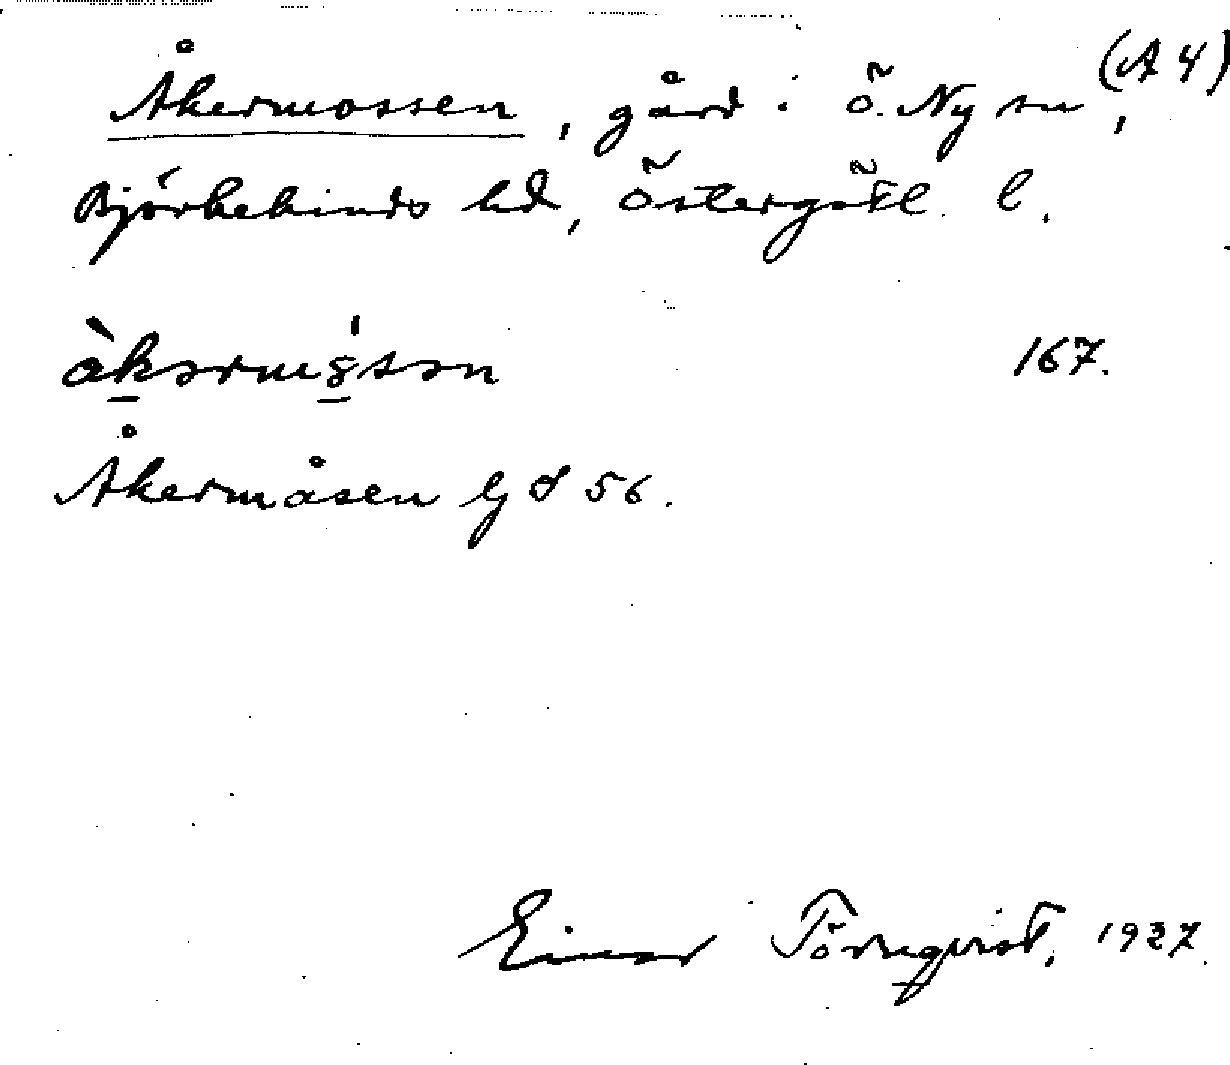 Åkermossen, gård i Ö. Ny sn, (A 4)
Björkekinds hd, Östergötl. l.
167.
Åkermåsen GS 56.
Einar Törnqvist, 1927.